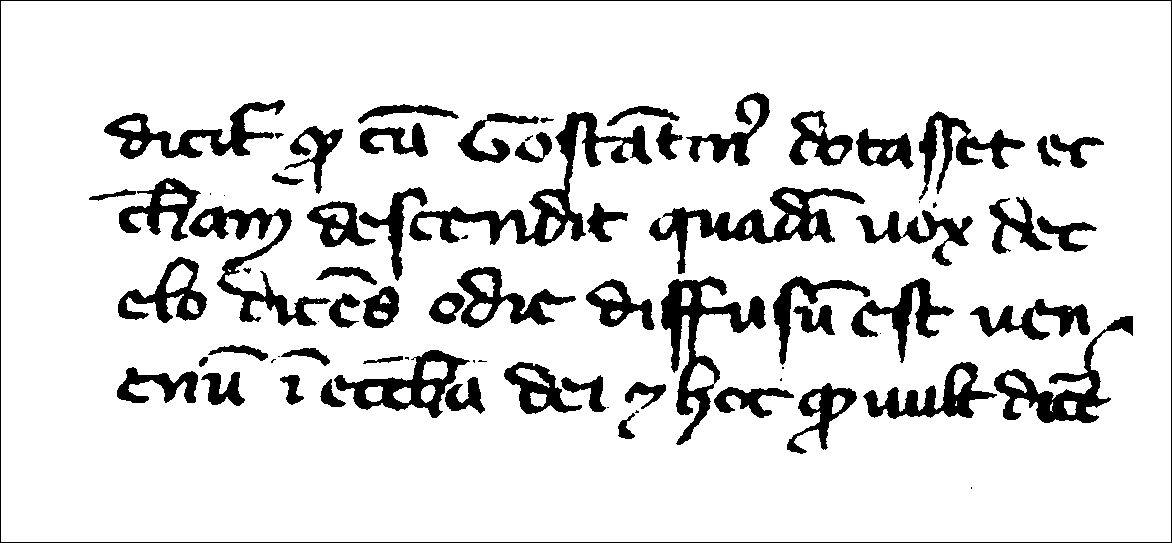 dicit ꝙ cū Gostātin⁹ dotasset ec
cl̄iam descendit quadā uox de c
elo dicēs odie diffusū est uen
enū ī eccl̄ia dei ⁊ hoc ꝙ uult dicē